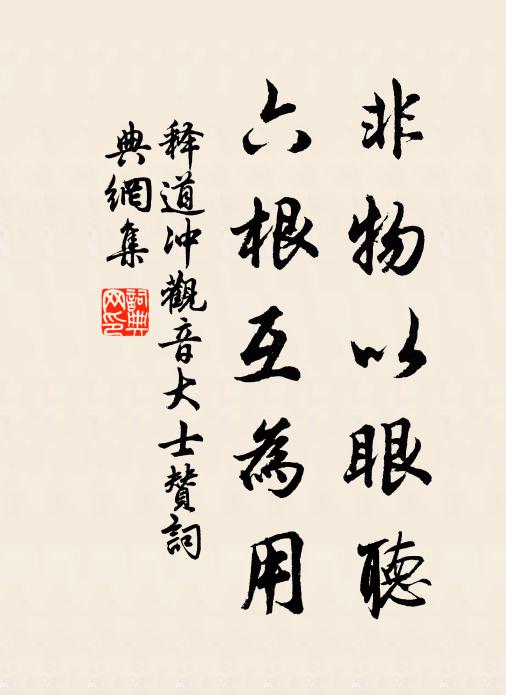 非物以眼聽
六根互為用
释道冲觀音大士赞詞
典網集
詞典網印